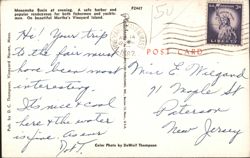 Menemsha Basin at evening. A safe harbor and
popular rendezvous for both fishermen and yachts-
men. On beautiful Martha's Vineyard Island.
P2467
Pub. by D. C. Thompson, Vineyard Haven, Mass.
Hi! Your trip
to the fair must
have been most
interesting.
Its nice & cool
here & the water
is fine. As ever
Dot.
POST CARD
Miss E. Wiegand
91 Maple St
Paterson
New Jersey
Color Photo by DeWolf Thompson